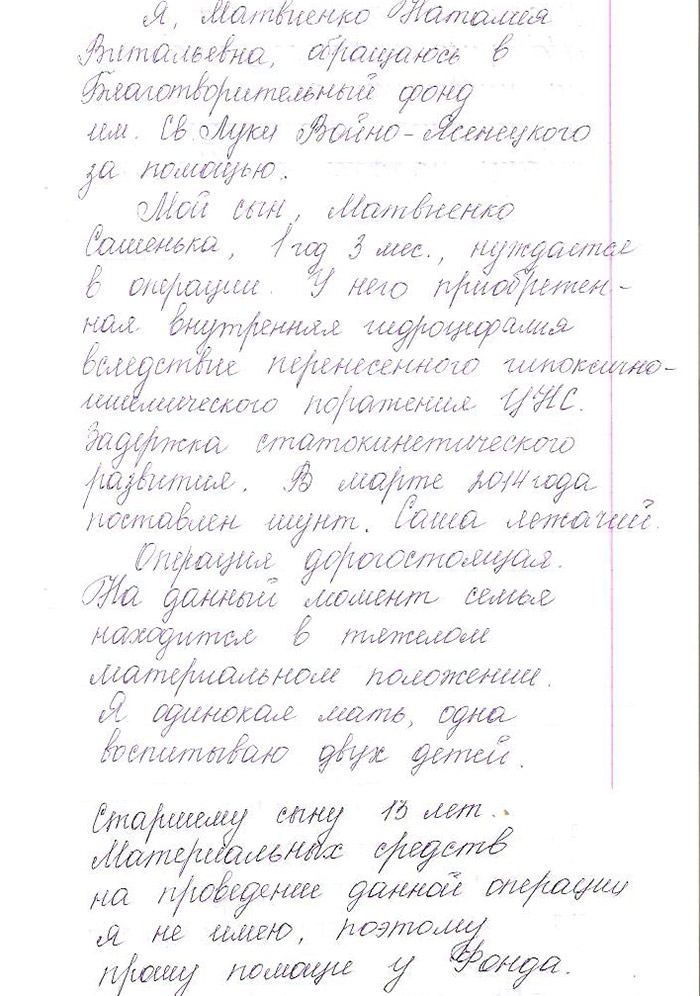 Я, Матвиенко Наталия
Витальевна, обращаюсь в
Благотворительный фонд
им. Св. Луки Войно-Ясенецкого
за помощью.
Мой сын, Матвиенко
Сашенька, 1 год 3 мес., нуждается
в операции. У него приобретен-
ная внутренняя гидроцефалия
вследствие перенесенного гипоксично-
ишемического поражения ЦНС.
Задержка статокинетического
развития. В марте 2014 года
поставлен шунт. Саша лежачий.
Операция дорогостоящая.
На данный момент семья
находится в тяжелом
материальном положении.
Я одинокая мать, одна
воспитываю двух детей.
Старшему сыну 13 лет.
Материальных средств
на проведение данной операции
я не имею, поэтому
прошу помощи у Фонда.